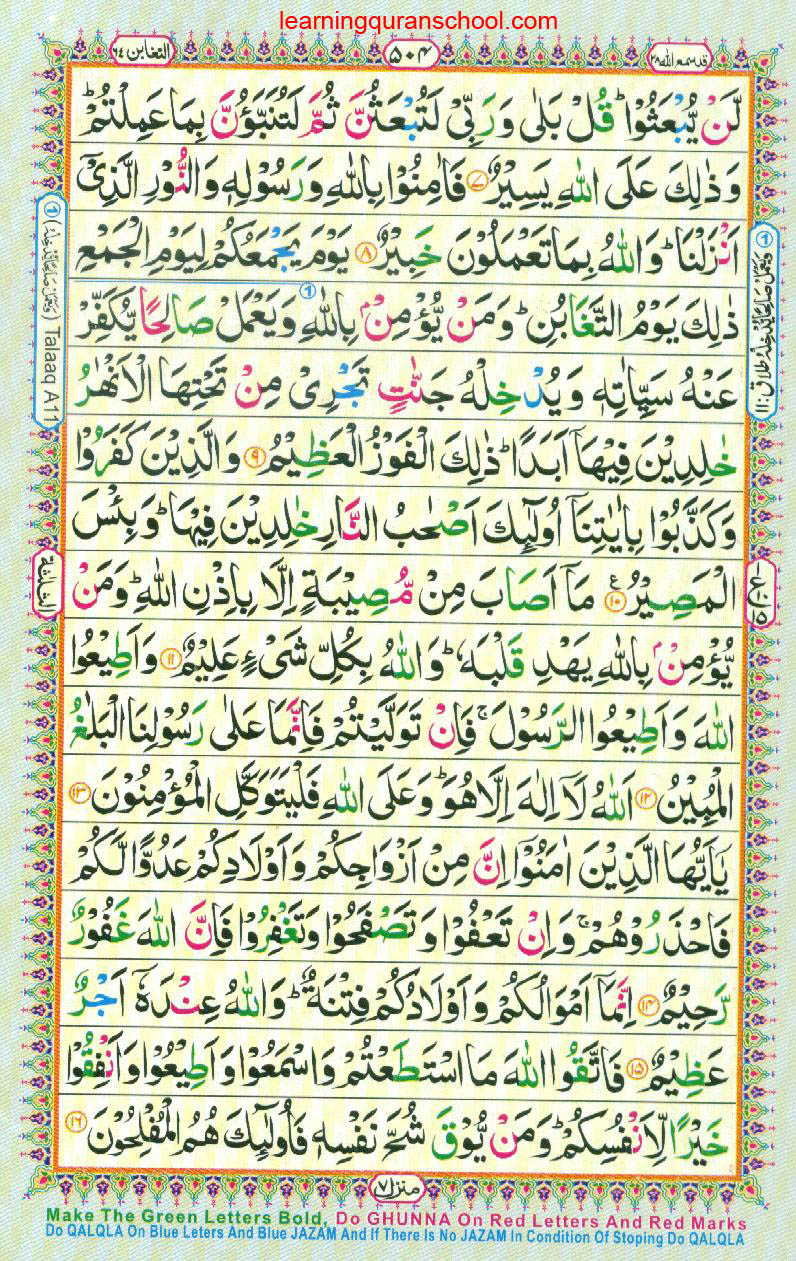 learningquranschool.com
التغابن ٦٤
٥٠٤
قد سمع الله ٢٨
لَّنْ يُّبْعَثُوْا ؕ قُلْ بَلٰى وَرَبِّىْ لَتُبْعَثُنَّ ثُمَّ لَتُنَبَّؤُنَّ بِمَا عَمِلْتُمْ ؕ
وَذٰلِكَ عَلَى اللّٰهِ يَسِيْرٌ ۟۷ فَاٰمِنُوْا بِاللّٰهِ وَرَسُوْلِهٖ وَالنُّوْرِ الَّذِىْۤ
اَنْزَلْنَا ؕ وَاللّٰهُ بِمَا تَعْمَلُوْنَ خَبِيْرٌ ۟۸ يَوْمَ يَجْمَعُكُمْ لِيَوْمِ الْجَمْعِ
ذٰلِكَ يَوْمُ التَّغَابُنِ ؕ وَمَنْ يُّؤْمِنْۢ بِاللّٰهِ وَيَعْمَلْ صَالِحًا يُّكَفِّرْ
عَنْهُ سَيِّاٰتِهٖ وَيُدْخِلْهُ جَنّٰتٍ تَجْرِىْ مِنْ تَحْتِهَا الْاَنْهٰرُ
خٰلِدِيْنَ فِيْهَاۤ اَبَدًا ؕ ذٰلِكَ الْفَوْزُ الْعَظِيْمُ ۟۹ وَالَّذِيْنَ كَفَرُوْا
وَكَذَّبُوْا بِاٰيٰتِنَاۤ اُولٰٓئِكَ اَصْحٰبُ النَّارِ خٰلِدِيْنَ فِيْهَا ؕ وَبِئْسَ
الْمَصِيْرُ ۟۱۰ مَاۤ اَصَابَ مِنْ مُّصِيْبَةٍ اِلَّا بِاِذْنِ اللّٰهِ ؕ وَمَنْ
يُّؤْمِنْۢ بِاللّٰهِ يَهْدِ قَلْبَهٗ ؕ وَاللّٰهُ بِكُلِّ شَىْءٍ عَلِيْمٌ ۟۱۱ وَاَطِيْعُوا
اللّٰهَ وَاَطِيْعُوا الرَّسُوْلَ ۚ فَاِنْ تَوَلَّيْتُمْ فَاِنَّمَا عَلٰى رَسُوْلِنَا الْبَلٰغُ
الْمُبِيْنُ ۟۱۲ اَللّٰهُ لَاۤ اِلٰهَ اِلَّا هُوَ ؕ وَعَلَى اللّٰهِ فَلْيَتَوَكَّلِ الْمُؤْمِنُوْنَ ۟۱۳
يٰۤاَيُّهَا الَّذِيْنَ اٰمَنُوْۤا اِنَّ مِنْ اَزْوَاجِكُمْ وَاَوْلَادِكُمْ عَدُوًّا لَّكُمْ
فَاحْذَرُوْهُمْ ۚ وَاِنْ تَعْفُوْا وَتَصْفَحُوْا وَتَغْفِرُوْا فَاِنَّ اللّٰهَ غَفُوْرٌ
رَّحِيْمٌ ۟۱۴ اِنَّمَاۤ اَمْوَالُكُمْ وَاَوْلَادُكُمْ فِتْنَةٌ ؕ وَاللّٰهُ عِنْدَهٗۤ اَجْرٌ
عَظِيْمٌ ۟۱۵ فَاتَّقُوا اللّٰهَ مَا اسْتَطَعْتُمْ وَاسْمَعُوْا وَاَطِيْعُوْا وَاَنْفِقُوْا
خَيْرًا لِّاَنْفُسِكُمْ ؕ وَمَنْ يُّوْقَ شُحَّ نَفْسِهٖ فَاُولٰٓئِكَ هُمُ الْمُفْلِحُوْنَ ۟۱۶
منزل ٧
Talaaq A11
Make The Green Letters Bold, Do GHUNNA On Red Letters And Red Marks
Do QALQLA On Blue Leters And Blue JAZAM And If There Is No JAZAM In Condition Of Stoping Do QALQLA